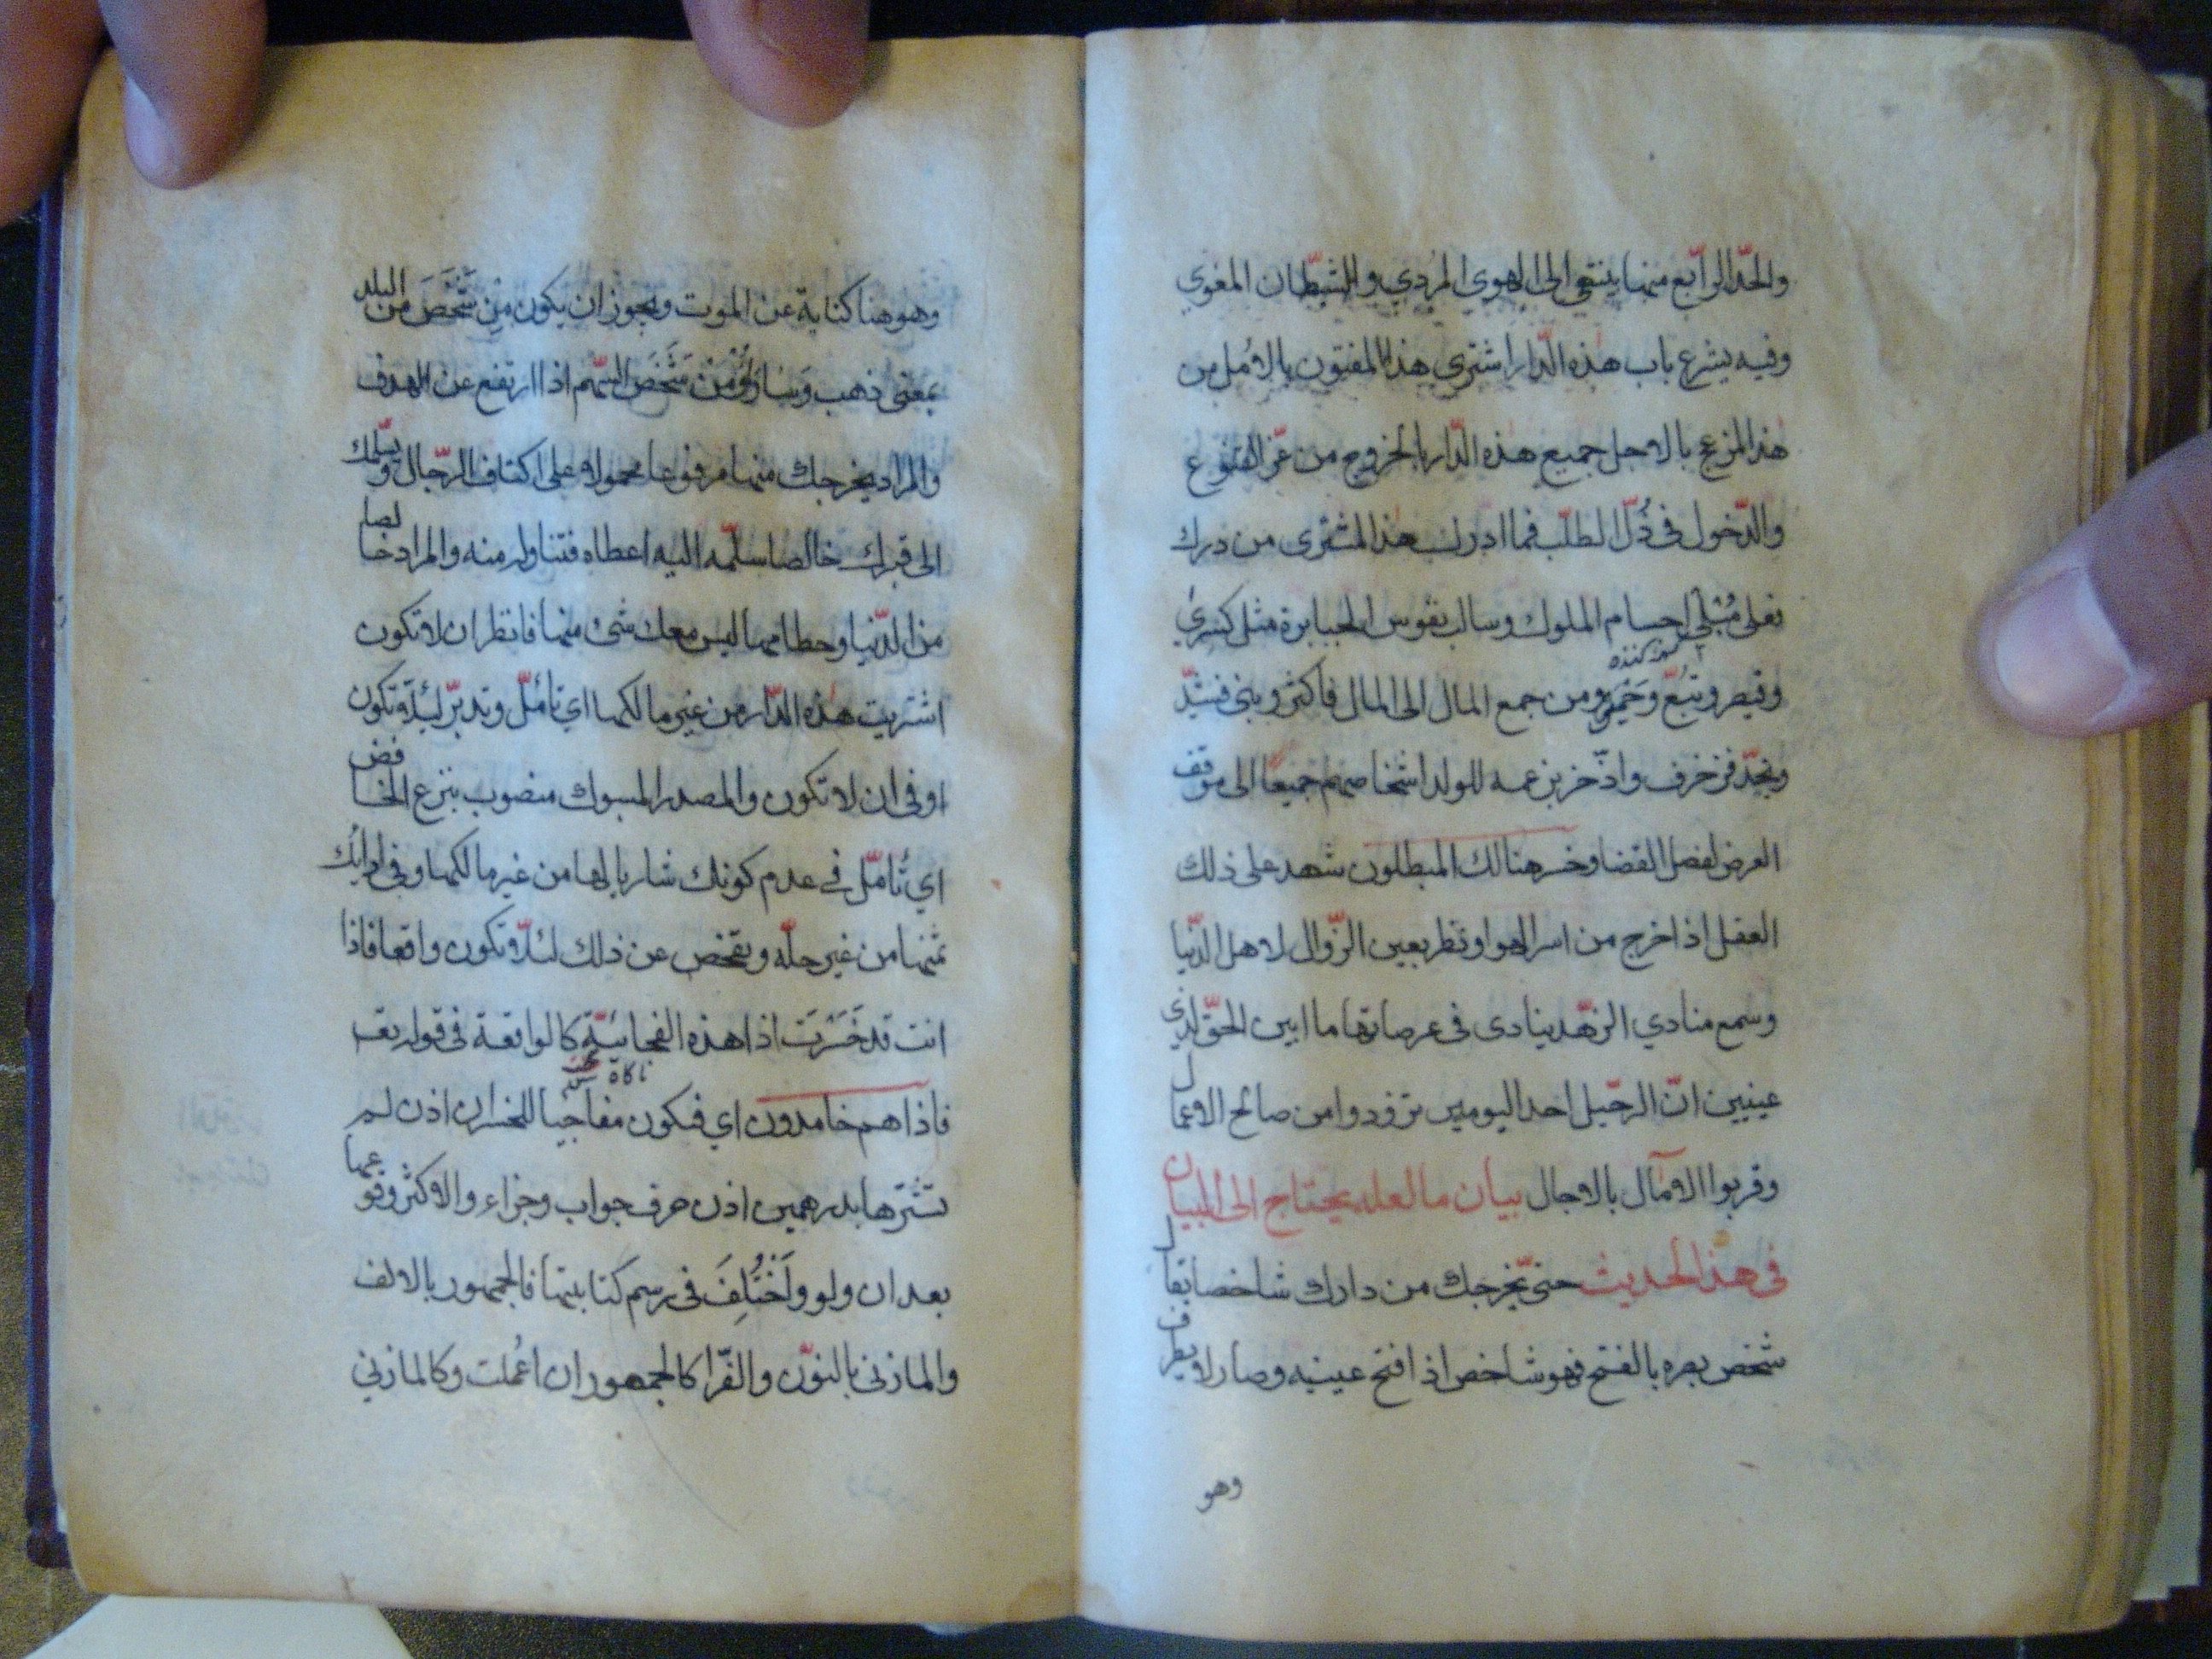 والحدّ الرابع منها ينتهي الى الهوى المردي والشيطان المغوي
وفيه يشرع باب هذه الدّار اشترى هذا المفتون بالامل من
هذا المزعج بالاجل جميع هذه الدّار بالخروج من عزّ القنوع
والدّخول في ذُلّ الطلب فما ادرك هذا المشترى من درك
فعلى مُبْلي اجسام الملوك وسالب نفوس الجبابرة مثل كسرى
وقيصر وتبّع وحمير ومن جمع المال الى المال فاكثر وبنى فشيّد
ونجّد فزخرف وادّخر بزعمه للولد اشخاصهم جميعًا الى موقف
العرض لفصل القضا وخسر هنالك المبطلون شهد على ذلك
العقل اذا خرج من اسر الهوا ونظر بعين الزّوال لاهل الدّنيا
وسمع منادي الزّهد ينادى في عرصاتها ما ابين الحقّ لذى
عينيين انّ الرحيل احد اليومين تزوّدوا من صالح الاعمال
وقربوا الآمال بالاجال بيان ما لعله يحتاج الى البيان
في هذا الحديث حتى يخرجك من دارك شاخصا يقال
شخص بصره بالفتح فهو شاخص اذا فتح عينيه وصار لا يطرف
وهو
وهو هنا كناية عن الموت ويجوز ان يكون من شَخَصَ من البلد
بمعنى ذهب وسار او من شَخَصَ السّهم اذا ارتفع عن الهدف
والمراد يخرجك منها مرفوعا محمولا على اكتاف الرّجال ويسلّمك
الى قبرك خالصا سلّمه اليه اعطاه فتناوله منه والمراد خالصا
من الدّنيا وحطامها ليس معك شئ منها فانظر ان لا تكون
اشتريت هذه الدّار من غير مالكها اي تأمّل وتدبّر لئلّا تكون
او في ان لا تكون والمصدر المسبوك منصوب بنزع الخافض
اي تأمّل في عدم كونك شاريا لها من غير مالكها وفي ادائك
ثمنها من غير حلّه وتفحص عن ذلك لئلّا تكون واقعا فاذا
انت قد خَسَرْتَ اذا هذه الفجائيّة كالواقعة في قوله تعـ
فاذا هم خامدون اي فتكون مفاجيا للخسران اذن لم
تشترها بدرهمين اذن حرف جواب وجزاء والاكثر وقوعها
بعد ان ولو واَخْتُلِفَ في رسم كتابتها فالجمهور بالالف
والمازنى بالنّون والفرّا كالجمهور ان اعُملت وكالمازني